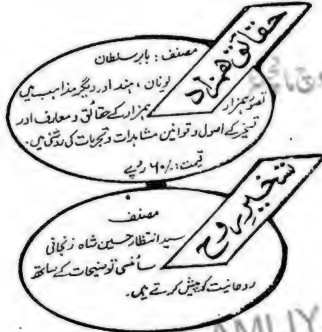 حقائق ہمزاد
مصنف: بابر سلطان
یونان، ہند اور دیگر مذاہب میں
تصور ہمزار ہمزار کے حقائق و معارف اور
تسخیر کے اصول و قوانین مشاہدات و تجربات کی روشنی میں۔
قیمت: ۶۰/۰ روپے
تسخیر روح
مصنف
سید انتظار حسین شاہ زنجانی
سائنسی توضیحات کے ساتھ
روحانیت کو پیش کرتے ہیں۔
AMLIY